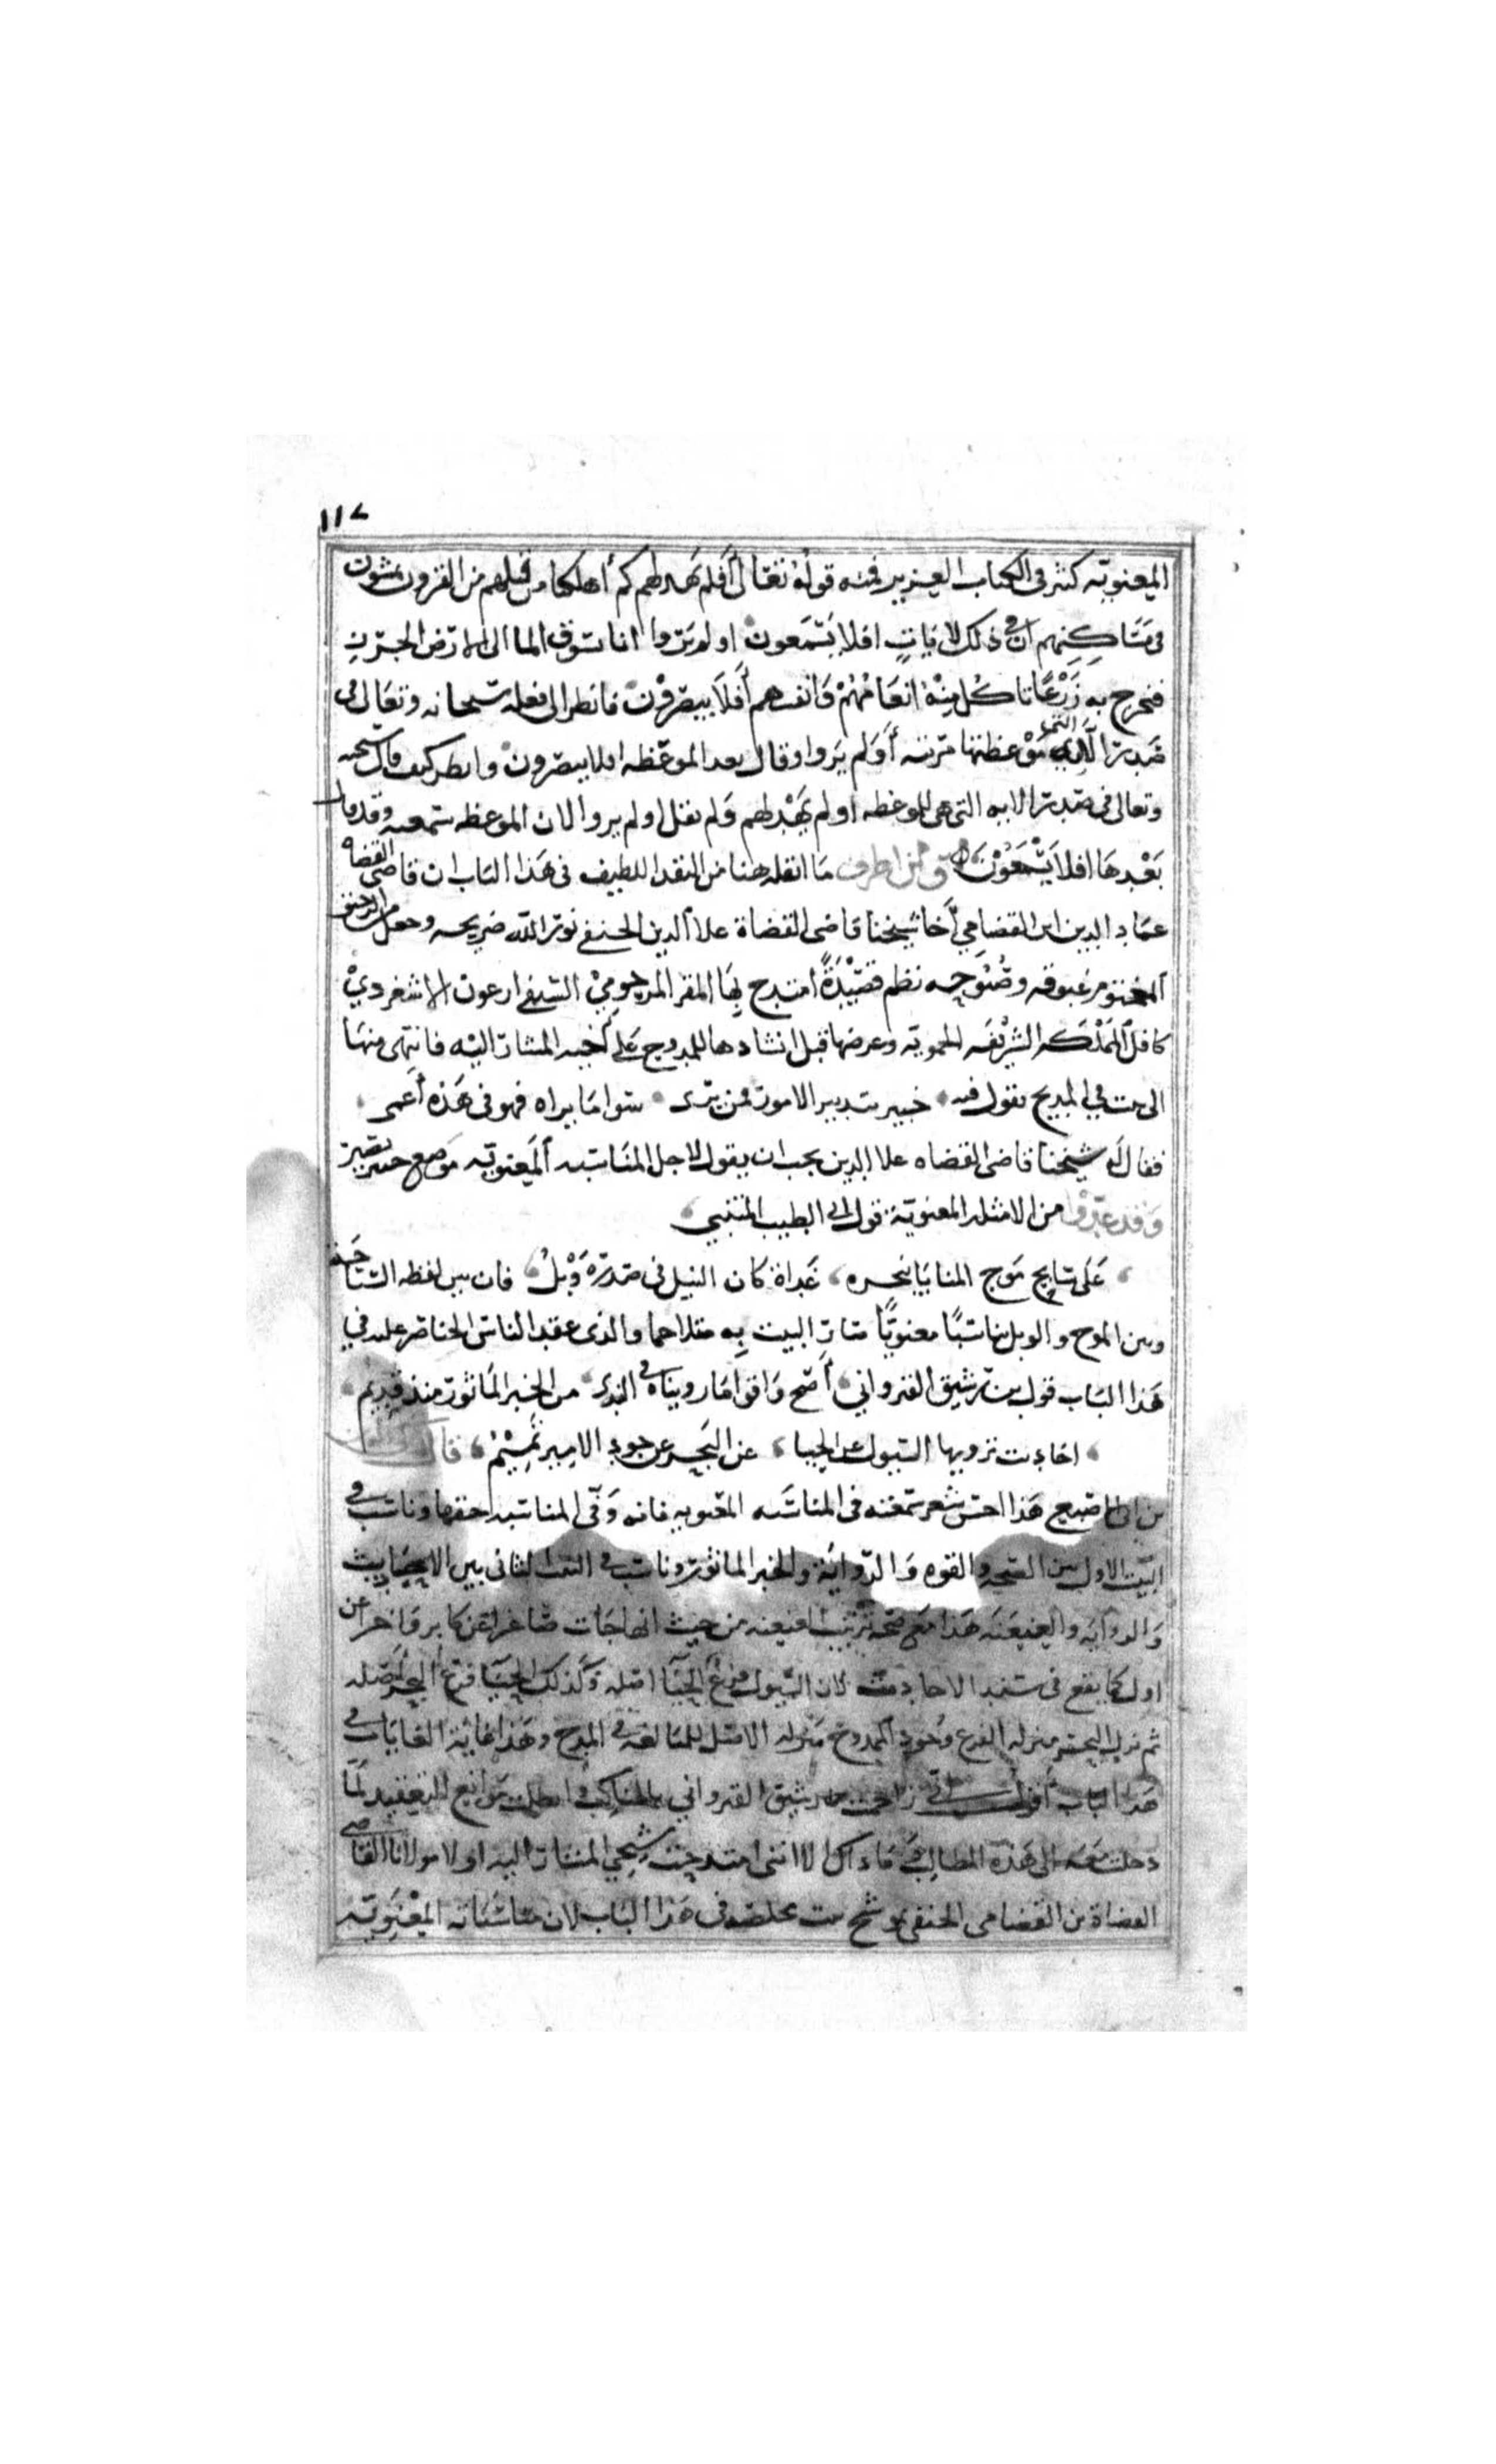 ١١٧
المعنويه كثير فى الكتاب العزيز فمنه قوله تعالى أفلم يهد لهم كم أهلكنا من قبلهم من القرون يمشون
فى مساكنهم ان فى ذلك لايات افلا يسمعون او لم يروا انا نسوق الما الى الارض الجرز
فنخرج به زرعا تاكل منه انعامهم وانفسهم أفلا يبصرون فانظر الى فعله سبحانه وتعالى فى
صدر الاية التى موعظتها مرئيه أولم يروا وقال بعد الموعظه افلا يبصرون وانظر كيف قال سبحنه
وتعالى فى صدر الايه التى هى للموعظه اولم يهد لهم ولم يقل اولم يروا لان الموعظه سمعيه وقد قال
بعدها افلا يسمعون ومن اظرف ما انقله هنا من النقد اللطيف فى هذا الباب ان قاضى القضاه
عماد الدين ابن القضامي أخا شيخنا قاضى القضاة علا الدين الحنفى نور الله ضريحه وجعل من الرحيق
المختوم غبوقه وصبوحه نظم قصيدة امتدح بها المقر المرحومي السيفى ارغون الاشغردي
كافل المملكه الشريفه الحمويه وعرضها قبل انشادها للممدوح على أخيه المشار اليه فانتهى منها
الى بيت في المديح يقول فيه خبير بتدبير الامور فمن يرى سوا ما يراه فهو فى هذه أعمى
فقال له شيخنا قاضى القضاه علا الدين يجب ان يقول لاجل المناسبه المعنويه موضع خبير بصير
وقد عبروا من الامثله المعنوية قول ابى الطيب المتنبي
على سابح موج المنايا بنحره غداة كان النبل فى صدره وبل فان بين لفظه السباحه
وبين الموج والوبل تناسبا معنويا صار البيت به متلاحما والذى عقد الناس الخناصر عليه في
هذا الباب قول بن رشيق القيرواني أصح واقوا ما رويناه فى الندى من الخبر الماثور منذ قديم
احاديث ترويها السيول عن الحيا عن البحر عن جود الامير تميم
بن ابى الاصبع هذا احسن شعر سمعته فى المناسبه المعنويه فانه وفى المناسبه حقها وناسب فى
البيت الاول بين الصحه والقوه والرواية والخبر الماثور وناسب فى البيت الثانى بين الاحاديث
والروايه والعنعنه هذا مع صحه ترتيب العنعنه من حيث انها جات صاغرا عن كابر واخر عن
اول كما يقع فى سند الاحاديث لان السيول فرع الحيا اصله وكذلك الحيا فرع البحر أصله
ثم نزل البحر منزله الفرع وجود الممدوح منزله الاصل للمبالغه فى المدح وهذا غاية الغايات فى
هذا الباب أقول زاحمت بن رشيق القيرواني بالمناكب وابطلت موانع التعقيد لما
دخلت معه الى هذه المطالب وما ذاك الا اننى امتدحت شيخي المشار اليه اولا مولانا القاضى
القضاة بن القضامى الحنفى بموشح بيت مخلصه فى هذا الباب لان مناسباته المعنويه